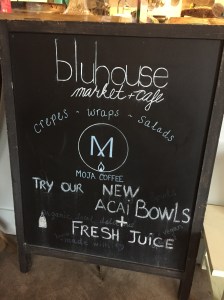 bluhouse
market + café
crepes - wraps - salads
M
MOJA COFFEE
TRY OUR NEW
ACAI BOWLS
+
FRESH JUICE